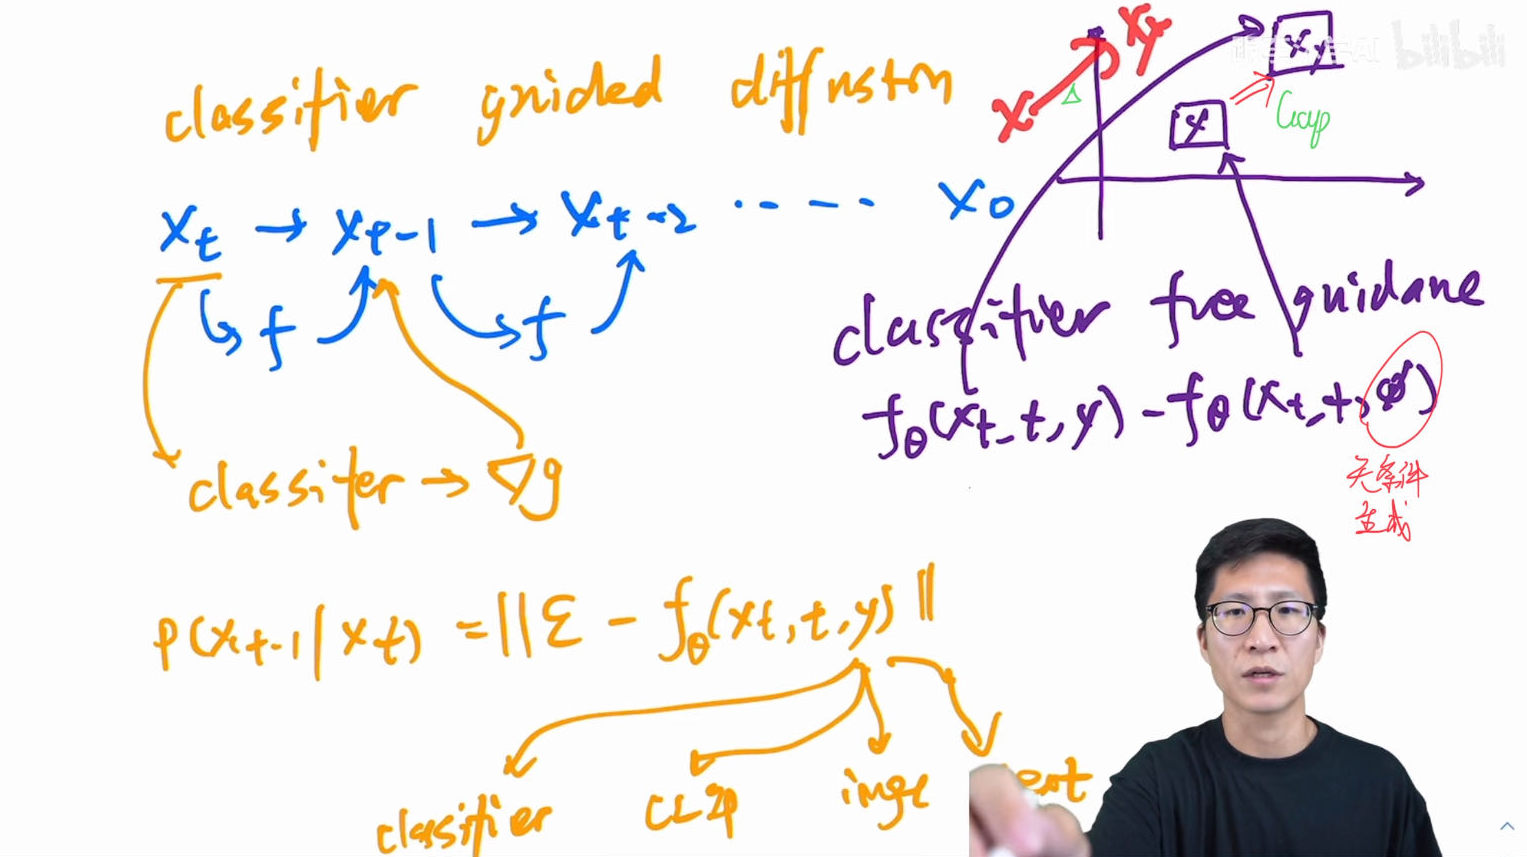 classifier guided diffusion
X_t → X_t-1 → X_t-2 ····· X_0
f f
classifer → ∇g
p(x_t-1 | x_t) = ||Σ - f_θ(x_t, t, y)||
classifier CLIP imge
X X_y
X_y
X
bilibili
classifier free guidane
f_θ(x_t, t, y) - f_θ(x_t, t, ∅)
无条件
生成